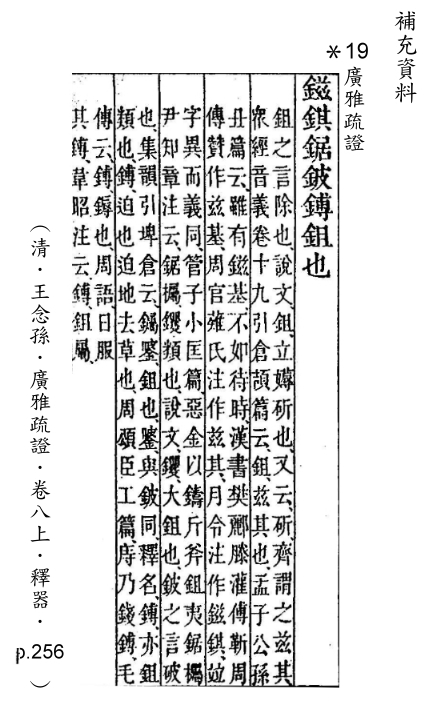 補充資料
*19
廣雅疏證
鎡錤鋸鈹鎛鉏也
鉏之言除也、說文、鉏、立薅斫也、又云、斫、齊謂之茲其、
眾經音義卷十九引倉頡篇云、鉏、茲其也、孟子公孫
丑篇云、雖有鎡基、不如待時、漢書樊酈滕灌傅靳周
傳贊作茲基、周官薙氏注作茲其、月令注作鎡錤、竝
字異而義同、管子小匡篇、惡金以鑄斤斧鉏夷鋸欘、
尹知章注云、鋸欘、钁類也、說文、钁、大鉏也、鈹之言破
也、集韻引埤倉云、鉏也、與鈹同、釋名、鎛、亦鉏
類也、鎛、迫也、迫地去草也、周頌臣工篇、庤乃錢鎛、毛
傳云、鎛、鎒也、周語、日服
其鎛、韋昭注云、鎛、鉏屬、
（清．王念孫．廣雅疏證．卷八上．釋器．p.256）